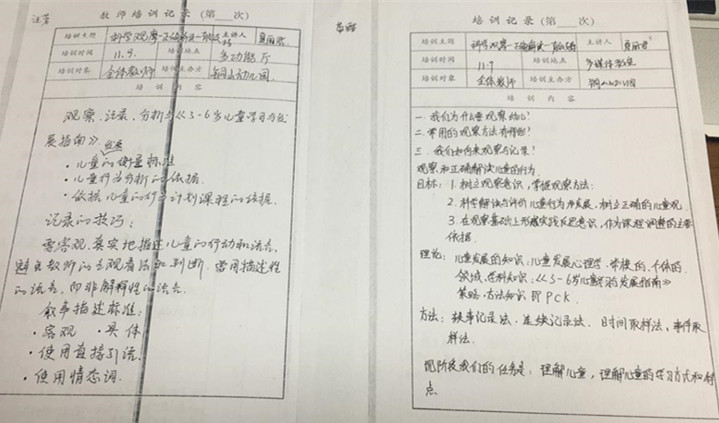 教师培训记录（第 次）
培训主题 科学观察 正确解读 主讲人 夏丽君
培训时间 11.9. 培训地点 多功能厅
培训对象 全体教师 培训主办方 幼儿园
培训内容
观察、记录、分析与《3-6岁儿童学习与发
展指南》
·儿童的衡量标准
·儿童行为分析的依据.
·依据儿童的行为计划课程的依据.
记录的技巧：
要客观真实地描述儿童的行动和语言,
避免教师的主观看法和判断.常用描述性
的语言,而非解释性的语言.
叙事描述标准：
·客观 ·具体
·使用直接引流.
·使用情态词.
培训记录（第 次）
培训主题 科学观察 正确解读 主讲人 夏丽君
培训时间 11.9 培训地点 多媒体教室
培训对象 全体教师 培训主办方 幼儿园
培训内容
一.我们为什么要观察幼儿？
二.常用的观察方法有哪些？
三.我们如何来观察与记录！
观察和正确解读儿童的行为.
目标：1.树立观察意识,掌握观察方法：
2.科学解读与评价儿童行为与发展,树立正确的儿童观.
3.在观察基础上形成实践反思意识,作为课程调整的主要
依据.
理论：儿童发展的知识：儿童发展心理学.常模的.个体的.
领域.学科知识：《3-6岁儿童学习与发展指南》
策略.方法知识即PCK.
方法：轶事记录法.连续记录法.时间取样法,事件取
样法.
现阶段我们的任务是：理解儿童,理解儿童的学习方式和特
点